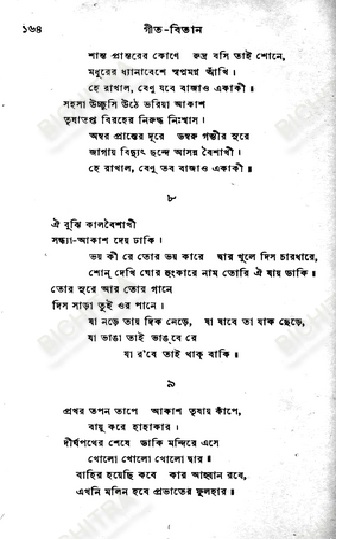 ১৬৪
গীত-বিতান
শান্ত প্রান্তরের কোণে রুদ্র বসি তাই শোনে,
মধুরের ধ্যানাবেশে স্বপ্নমগ্ন আঁখি।
হে রাখাল, বেণু যবে বাজাও একাকী।
সহসা উচ্ছ্বসি উঠে ভরিয়া আকাশ
তৃষাতপ্ত বিরহের নিরুদ্ধ নিঃশ্বাস।
অম্বর প্রান্তের দূরে ডম্বরু গম্ভীর সুরে
জাগায় বিদ্যুৎ ছন্দে আসন্ন বৈশাখী।
হে রাখাল, বেণু তব বাজাও একাকী॥
৮
ঐ বুঝি কালবৈশাখী
সন্ধ্যা-আকাশ দেয় ঢাকি।
ভয় কী রে তোর ভয় কারে দ্বার খুলে দিস চারধারে,
শোন্ দেখি ঘোর হুংকারে নাম তোরি ঐ যায় ডাকি॥
তোর সুরে আর তোর গানে
দিস সাড়া তুই ওর পানে।
যা নড়ে তায় দিক নেড়ে, যা যাবে তা যাক ছেড়ে,
যা ভাঙা তাই ভাঙ্‌বে রে
যা র'বে তাই থাক্ বাকি॥
৯
প্রখর তপন তাপে আকাশ তৃষায় কাঁপে,
বায়ু করে হাহাকার।
দীর্ঘপথের শেষে ডাকি মন্দিরে এসে
খোলো খোলো খোলো দ্বার॥
বাহির হয়েছি কবে কার আহ্বান রবে,
এখনি মলিন হবে প্রভাতের ফুলহার॥
BICHITRA